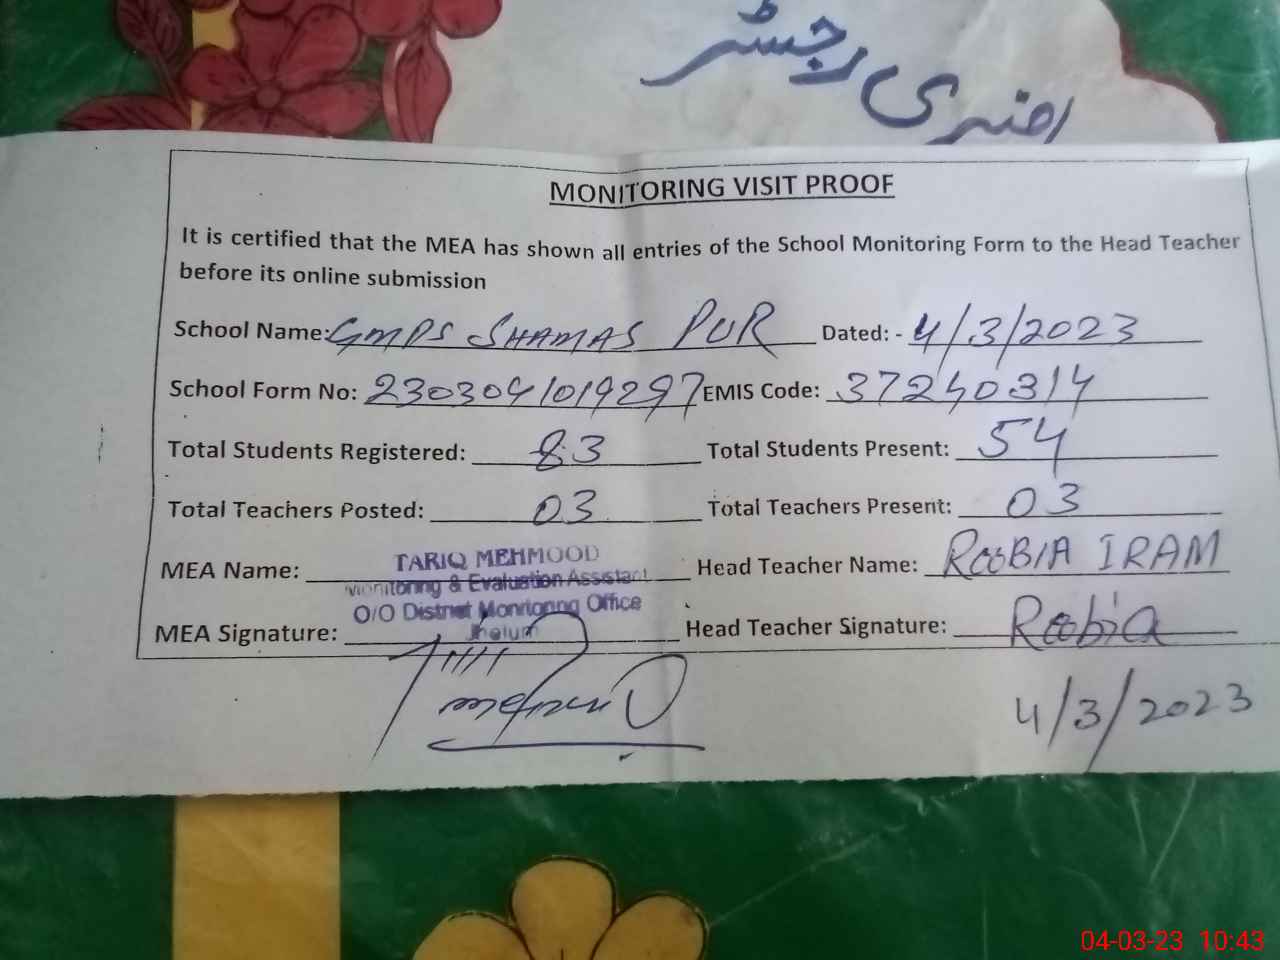 افسری رجسٹر
MONITORING VISIT PROOF
It is certified that the MEA has shown all entries of the School Monitoring Form to the Head Teacher
before its online submission
School Name: GMPS SHAMAS PUR Dated: - 4/3/2023
School Form No: 2303041019297 EMIS Code: 37240314
Total Students Registered: 83 Total Students Present: 54
Total Teachers Posted: 03 Total Teachers Present: 03
MEA Name: TARIQ MEHMOOD Head Teacher Name: ROOBIA IRAM
Monitoring & Evaluation Assistant
O/O District Monitoring Office
Jhelum
MEA Signature: Head Teacher Signature: Roobia
4/3/2023
04-03-23 10:43